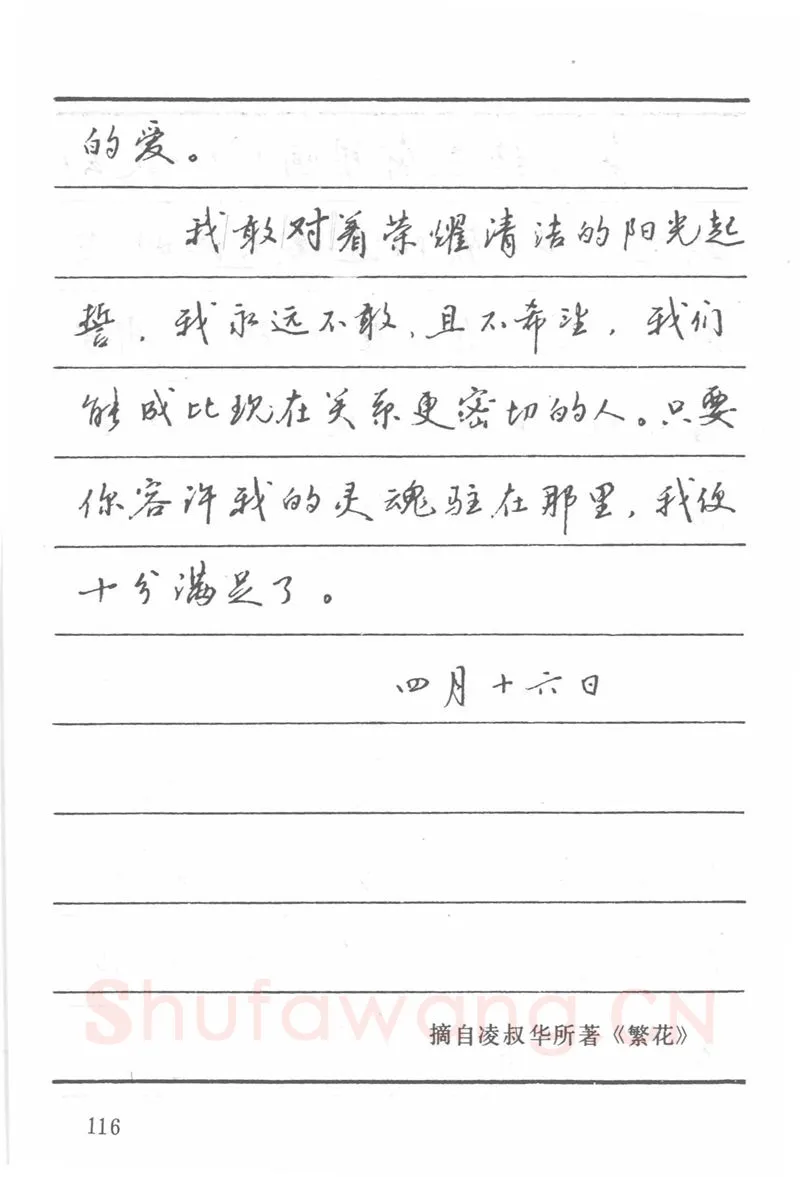 的爱。
我敢对着荣耀清洁的阳光起
誓，我永远不敢，且不希望，我们
能成比现在关系更密切的人。只要
你容许我的灵魂驻在那里，我便
十分满足了。
四月十六日
Shufawang.CN
摘自凌叔华所著《繁花》
116